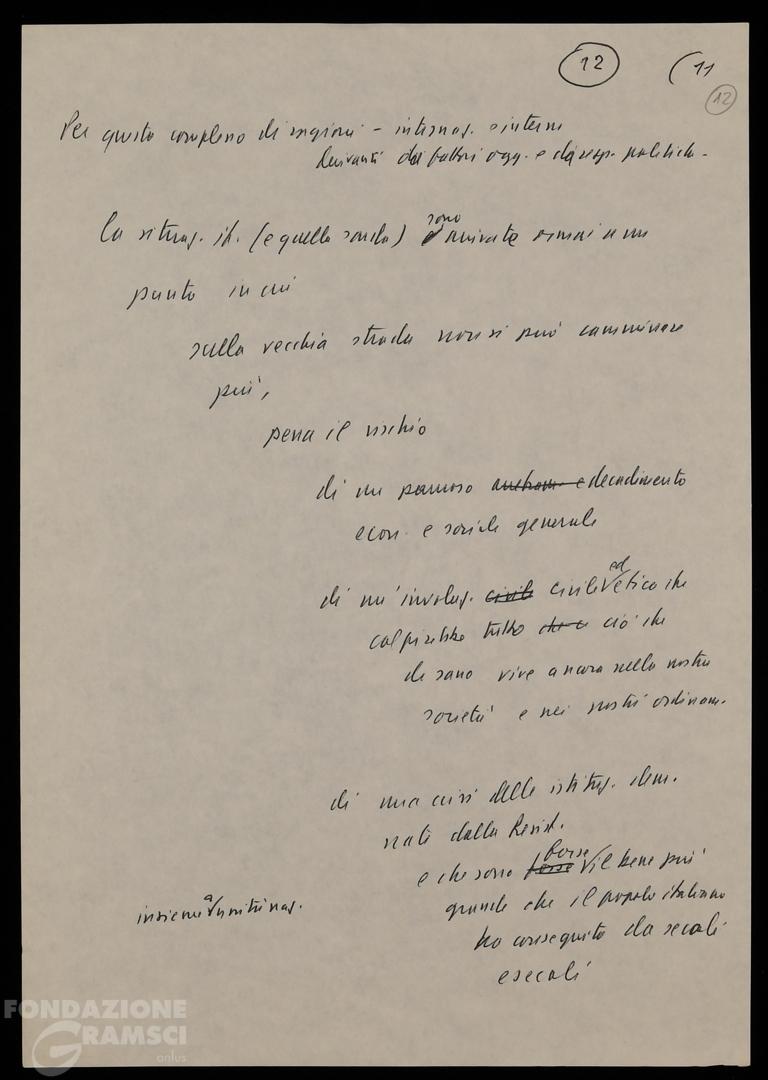 12
(11
12
Per questo complesso di ragioni – internaz. e interni
derivanti dai fattori ogg. e da resp. politiche –
sono
La situaz. it. (e quella sarda) è arrivata ormai a un
punto in cui
sulla vecchia strada non si può camminare
più,
pena il rischio
di un pauroso decadimento
econ. e sociale generale
ed
di un'involuz. civile civile etica che
colpirebbe tutto che c ciò che
di sano vive ancora nella nostra
società e nei nostri ordinam.
di una crisi delle istituz. dem.
nate dalla Resist.
forse
e che sono forse il bene più
insieme a unità naz.
grande che il popolo italiano
ha conseguito da secoli
e secoli
FONDAZIONE
GRAMSCI
onlus